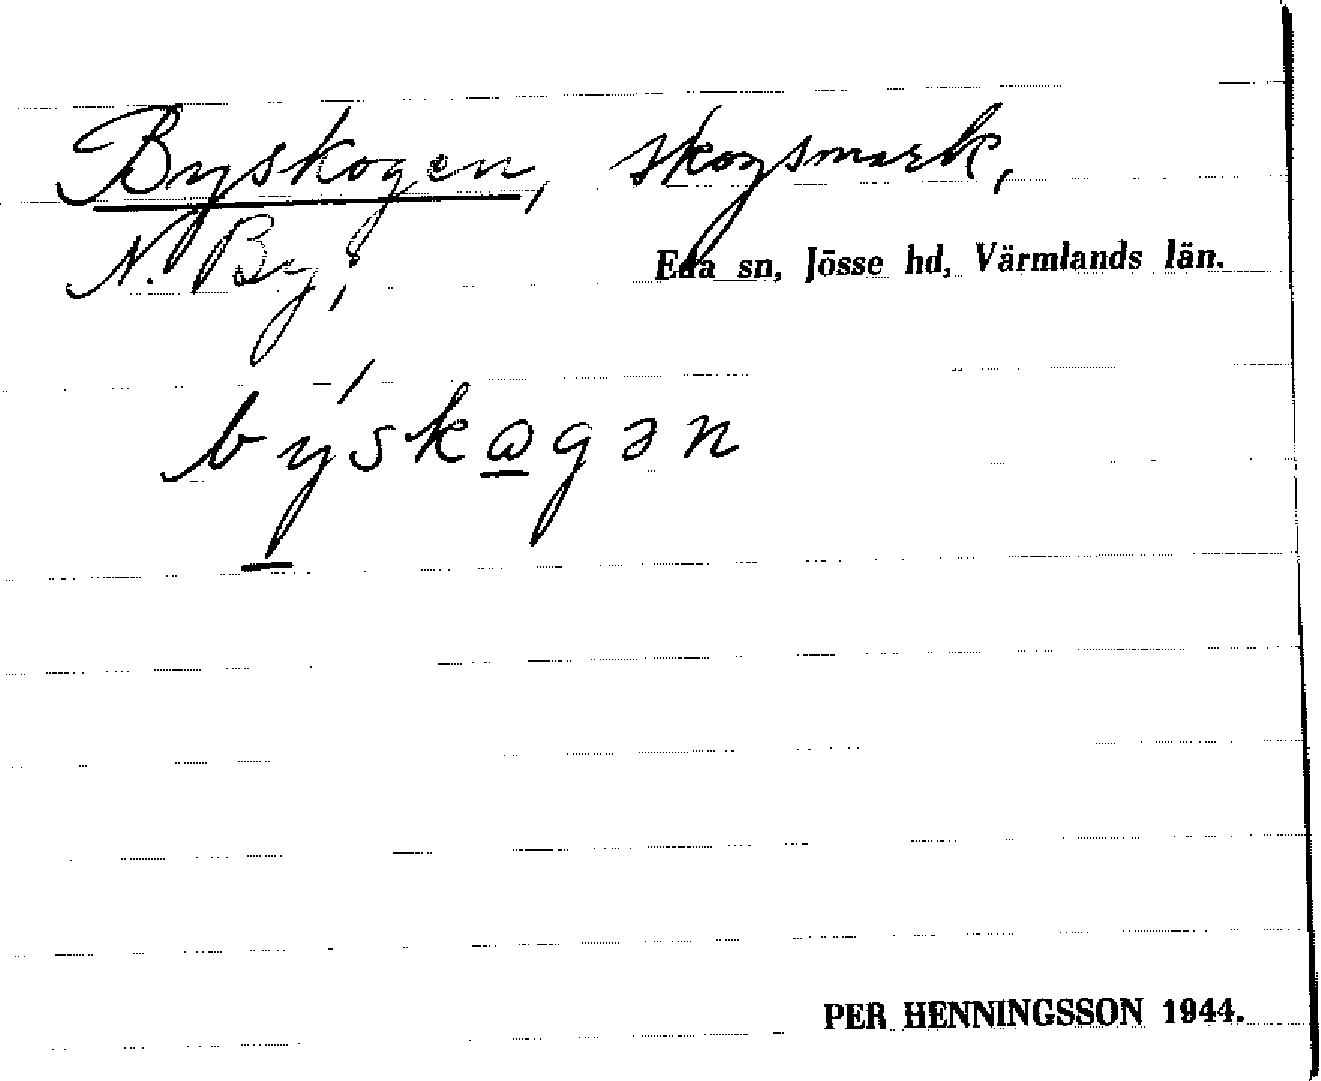 Byskogen, skogsmark,
N. By; Eda sn, Jösse hd, Värmlands län.
býskωgən
PER HENNINGSSON 1944.